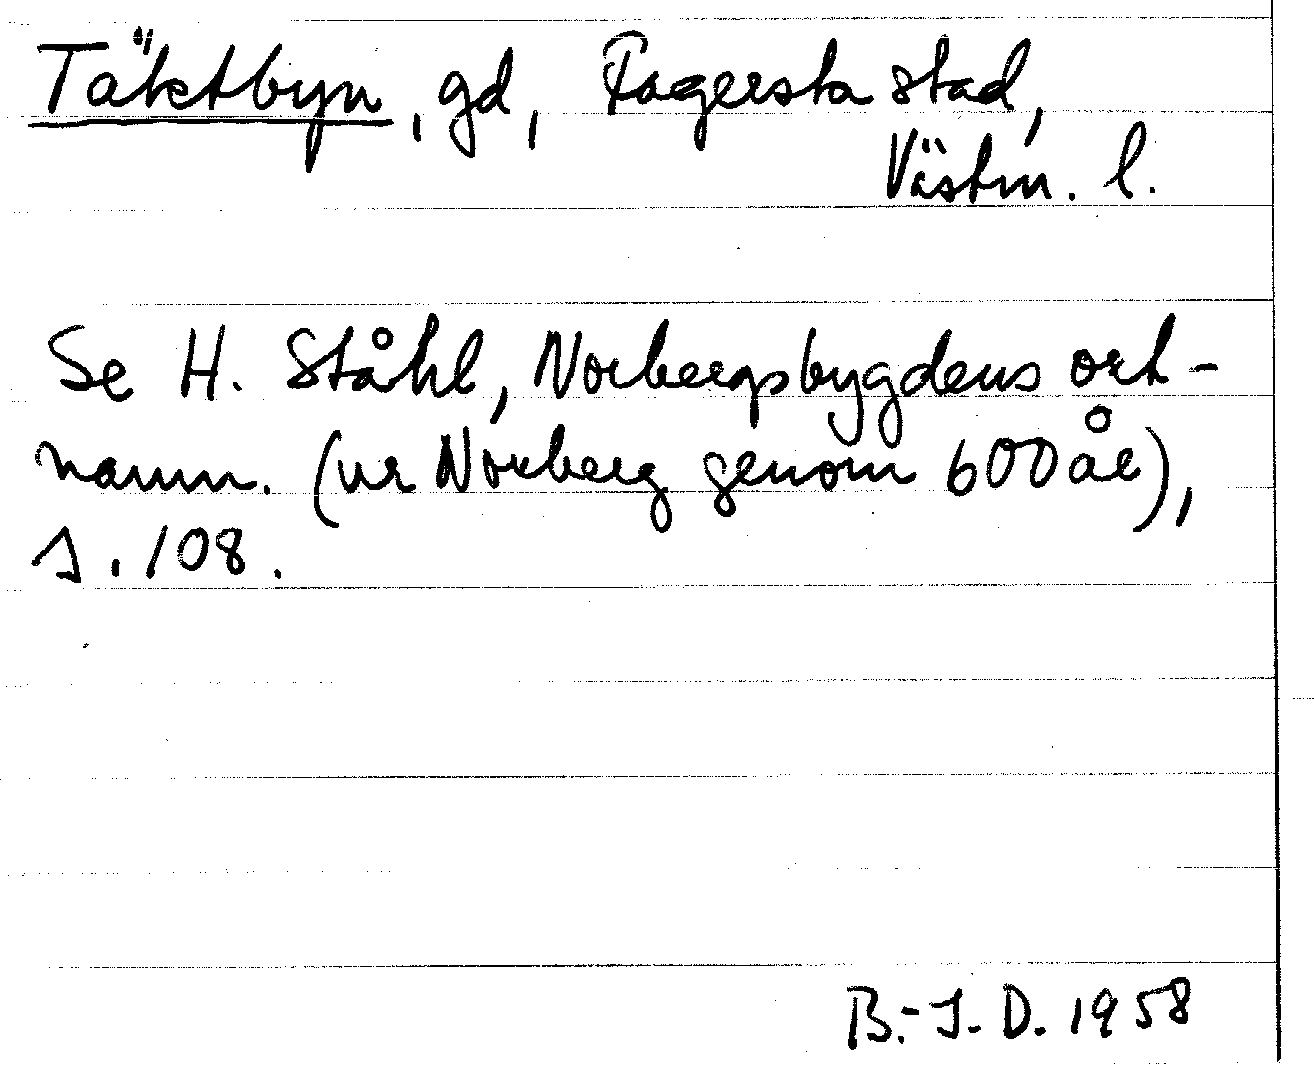 Täktbyn, gd, Fagersta stad,
Västm. l.
Se H. Ståhl, Norbergsbygdens ort-
namn. (ur Norberg genom 600 år),
s. 108.
B.-J. D. 1958